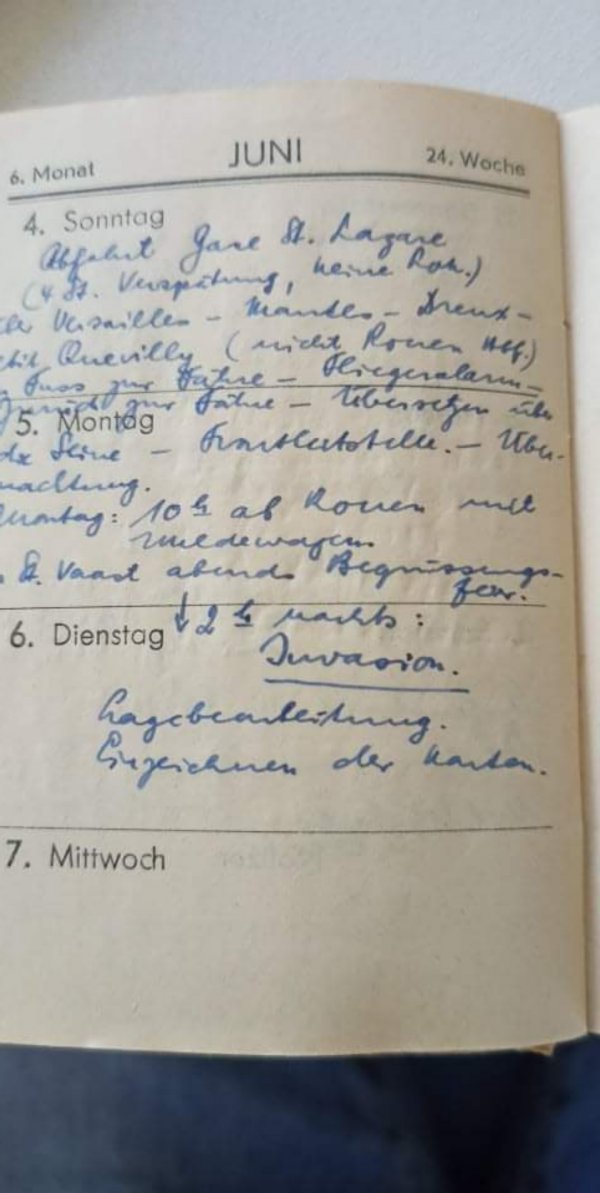 6. Monat JUNI 24. Woche
4. Sonntag
Abfahrt Gare St. Lazare
(4 St. Verspätung, keine Lok.)
über Versailles – Mantes – Dreux –
Petit Quevilly (nicht Rouen Hbf.)
zu Fuss zur Fähre – Fliegeralarm –
Zurück zur Fähre – Übersetzen über
5. Montag
die Seine – Frontleitstelle. – Über-
nachtung.
Montag: 10 h ab Rouen mit
St. Vaast abends Begrüssungs-
feier.
6. Dienstag ↓ 2 h nachts:
Invasion.
Lagebearbeitung.
Einzeichnen der Karten.
7. Mittwoch